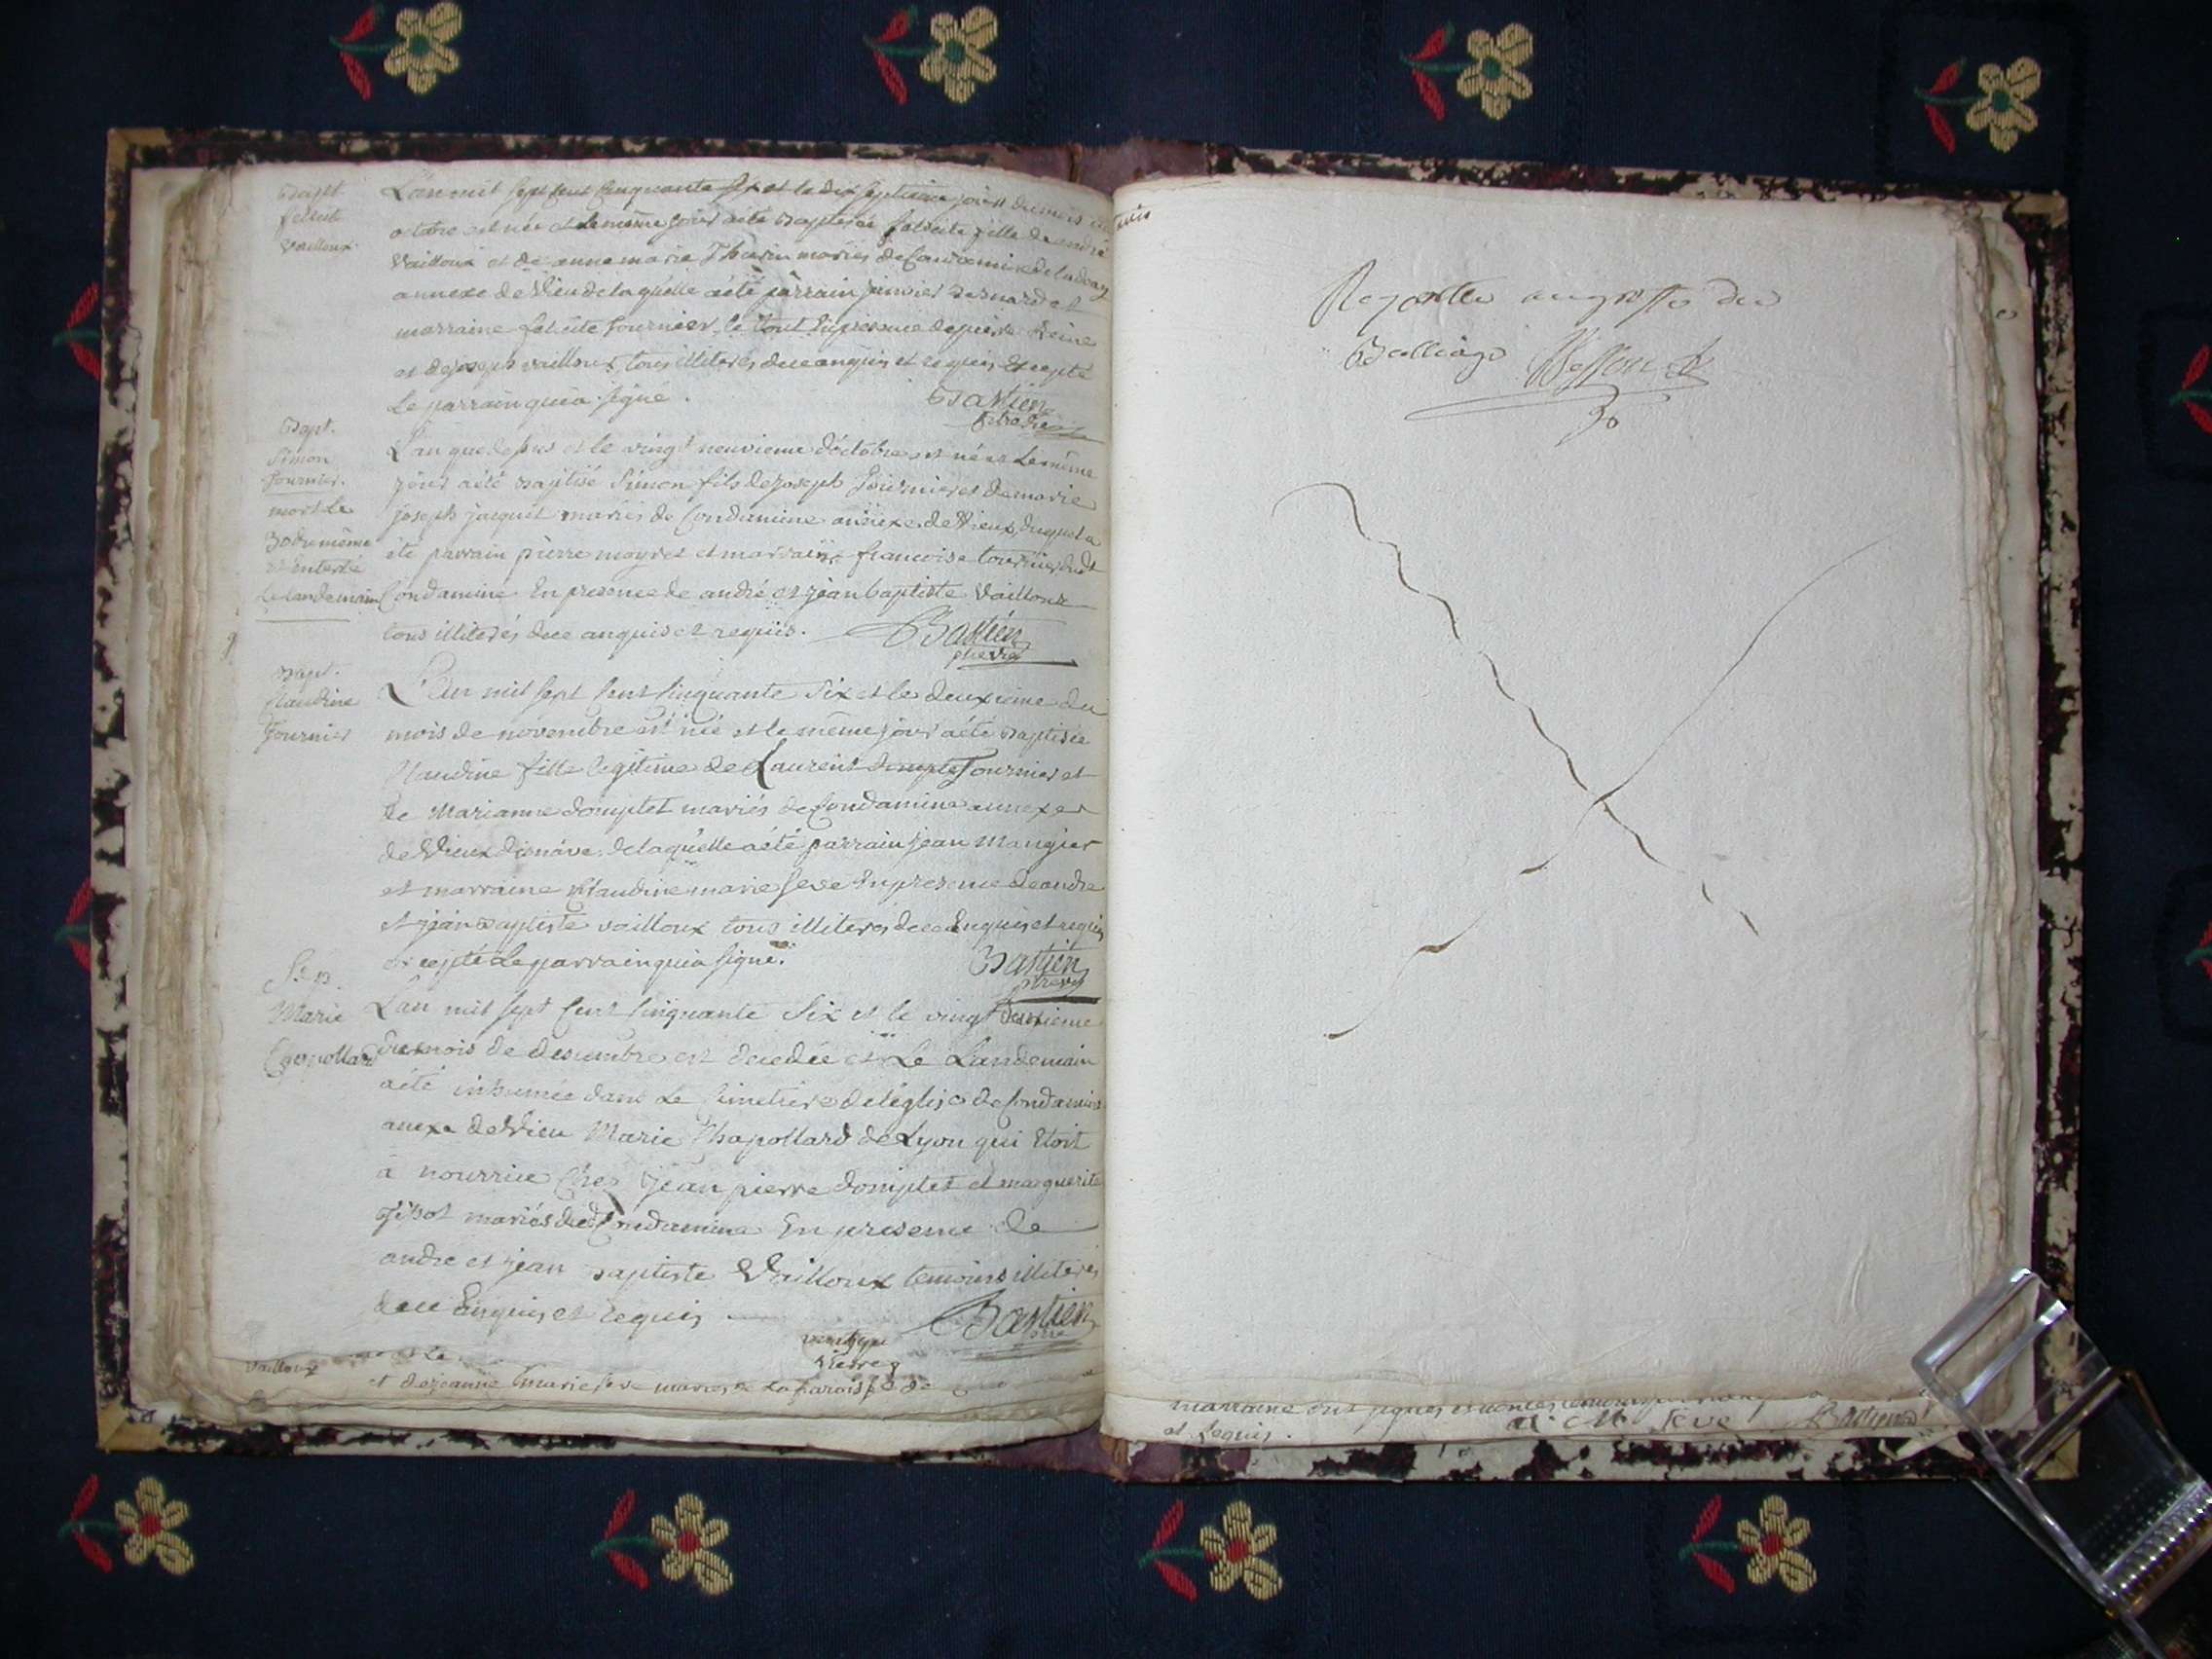 Bapt.
felicité
Vailloux.
L'an mil sept cent cinquante six et le dix septieme jour du mois
octobre est née et le même jour a été baptisée felicité fille de andré
Vailloux et de anne marie Thevin mariés de Condamine de la doay
annexe de Vieu de laquelle a été parrain janvier bernard et
marraine felicite fournier le tout en presence de pierre
et de joseph vailloux, tous illiterés de ce enquis et requis excepté
Le parrain qui a signé.
Bastien
ptre vic
Bapt.
Simon
fournier.
mort le
30 du même
et enterré
Le landemain
L'an que dessus et le vingt neuvieme d'octobre est né et Le même
jour a été baptisé Simon fils de joseph fournier et de marie
joseph jacquet mariés de Condamine annexe de Vieux, duquel a
été parrain pierre moyret et marraine francoise tournier dudt
Condamine En presence de andré et jean baptiste Vailloux
tous illiterés de ce enquis et requis.
Bastien
ptre vic
Bapt.
Claudine
fournier
L'an mil sept cent cinquante six et le deuxieme du
mois de novembre est née et le même jour a été baptisée
Claudine fille legitime de Laurent domptet fournier et
de Marianne domptet mariés de Condamine annexe
de Vieux d'isnave. de laquelle a été parrain jean Mangier
et marraine Claudine marie seve En presence de andre
et jean baptiste vailloux tous illiterés de ce Enquis et requis
excepté Le parrain qui a signé.
Bastien
ptre vic
Marie
Chapollard
L'an mil sept cent cinquante six et le vingt deuxieme
du mois de desembre est decedée et Le Landemain
a été inhumée dans Le Cimetiere de l'église de Condamine
anexe de Vieu Marie Chapollard de Lyon qui étoit
à nourrice Chez jean pierre domptet et marguerite
jibot mariés dudt Condamine En presence de
andre et jean baptiste Vailloux temoins illiterés
de ce Enquis et requis
Bastien
ptre
Vailloux
et de jeanne marie seve mariés de La paroisse de
Bastien
marraine ont signés
et requis.
seve